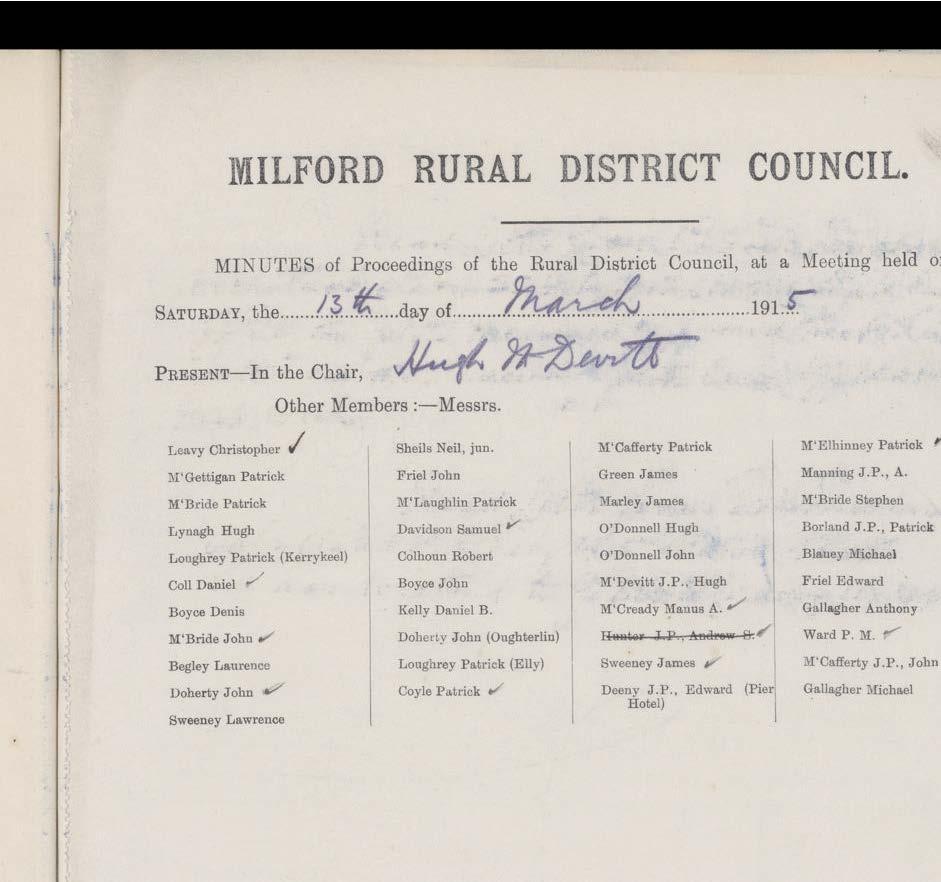 MILFORD RURAL DISTRICT COUNCIL.
MINUTES of Proceedings of the Rural District Council, at a Meeting held
SATURDAY, the......13th....day of..........March......................191.5
PRESENT—In the Chair, Hugh McDevitt
Other Members :—Messrs.
Leavy Christopher ✓
M'Gettigan Patrick
M'Bride Patrick
Lynagh Hugh
Loughrey Patrick (Kerrykeel)
Coll Daniel ✓
Boyce Denis
M'Bride John ✓
Begley Laurence
Doherty John ✓
Sweeney Lawrence
Sheils Neil, jun.
Friel John
M'Laughlin Patrick
Davidson Samuel ✓
Colhoun Robert
Boyce John
Kelly Daniel B.
Doherty John (Oughterlin)
Loughrey Patrick (Elly)
Coyle Patrick ✓
M'Cafferty Patrick
Green James
Marley James
O'Donnell Hugh
O'Donnell John
M'Devitt J.P., Hugh
M'Cready Manus A. ✓
Hunter J.P., Andrew S. ✓
Sweeney James ✓
Deeny J.P., Edward (Pier
Hotel)
M'Elhinney Patrick ✓
Manning J.P., A.
M'Bride Stephen
Borland J.P., Patrick
Blaney Michael
Friel Edward
Gallagher Anthony
Ward P. M. ✓
M'Cafferty J.P., John
Gallagher Michael